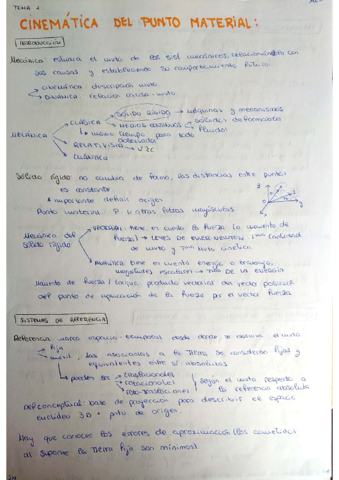 TEMA 1
CINEMÁTICA DEL PUNTO MATERIAL:
INTRODUCCIÓN
Mecánica estudia el mvto de los sist mecánicos, relacionándolo con
sus causas y estableciendo su comportamiento futuro.
cinemática: descripción mvto
dinámica: relación causa - mvto
SÓLIDO RÍGIDO → máquinas y mecanismos
CLÁSICA
MEDIOS CONTINUOS
sólidos deformables
fluidos
MECÁNICA
mismo tiempo para todo
RELATIVISTA
CUÁNTICA
Sólido rígido no cambia de forma, las distancias entre puntos
es constante
* importante definir origen
Punto material: P u otras letras mayúsculas
Mecánica del sólido rígido
VECTORIAL: tiene en cuenta la fuerza (o momento de
fuerza) → LEYES DE NEWTON
de mvto y mvto cinético
ANALÍTICA tiene en cuenta energía o trabajo,
magnitudes escalares → DE LA ENERGÍA
Momento de fuerza / torque, producto vectorial del vector posición
del punto de aplicación de la fuerza por el vector fuerza
SISTEMAS DE REFERENCIA
Referencia: marco espacio-temporal desde donde se observa el mvto
fijo
móvil, los asociados a la Tierra se consideran fijos y
equivalentes entre sí absolutos
pueden ser
traslacionales
rotacionales
roto-traslacionales
según el mvto respecto a
la referencia absoluta
def conceptual: base de proyección para describir el espacio
euclídeo 3D + pnto de origen
Hay que conocer los errores de aproximación (los cometidos
al suponer la Tierra fija son mínimos)